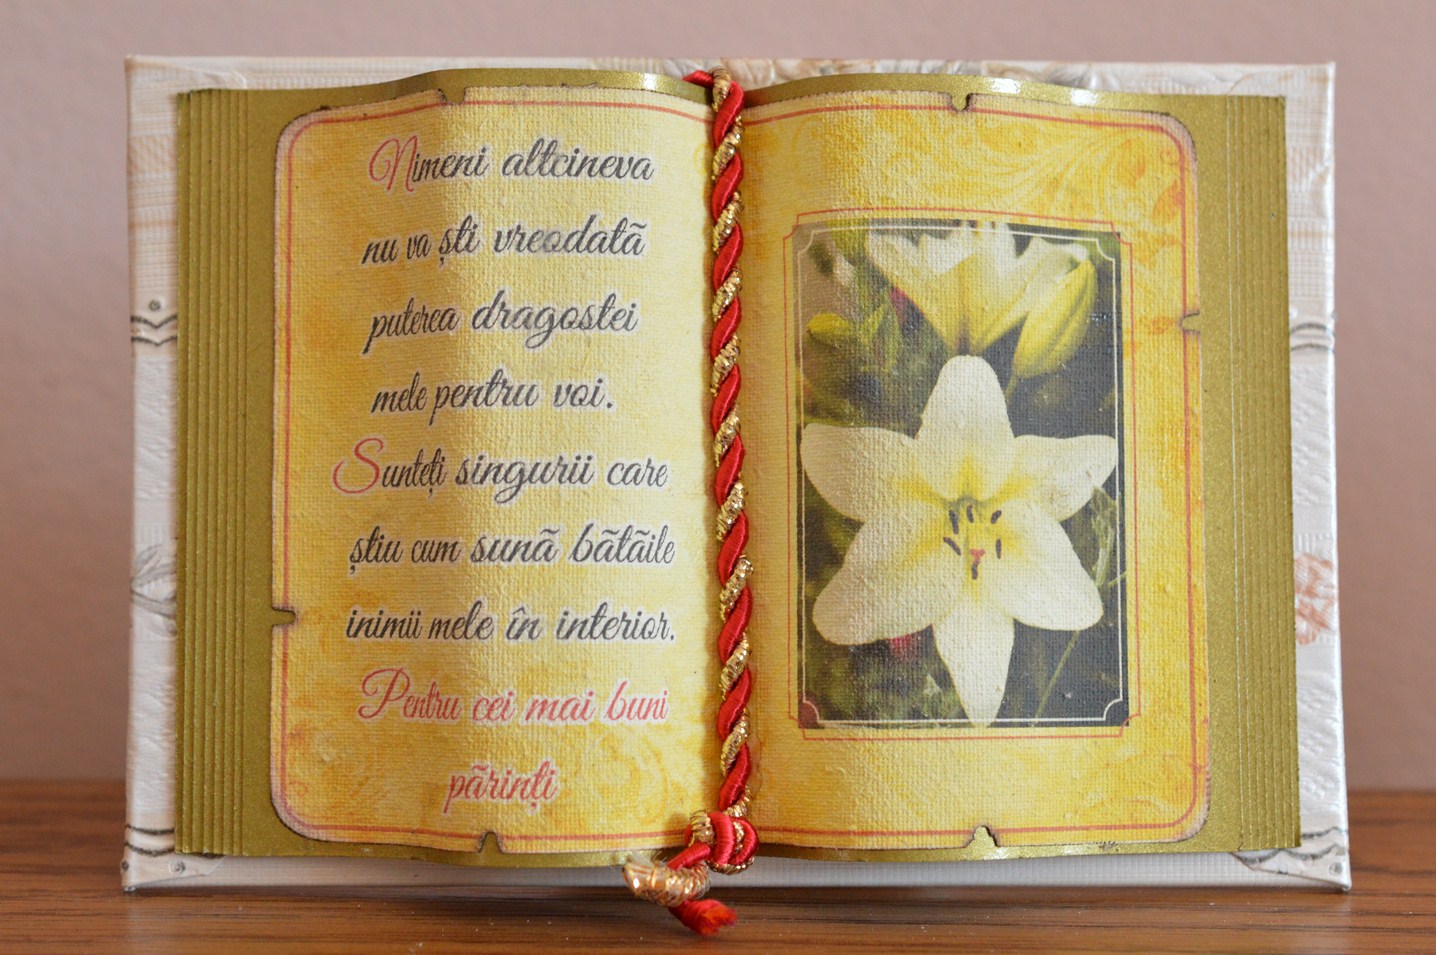 Nimeni altcineva
nu va ști vreodată
puterea dragostei
mele pentru voi.
Sunteți singurii care
știu cum sună bătăile
inimii mele în interior.
Pentru cei mai buni
părinți